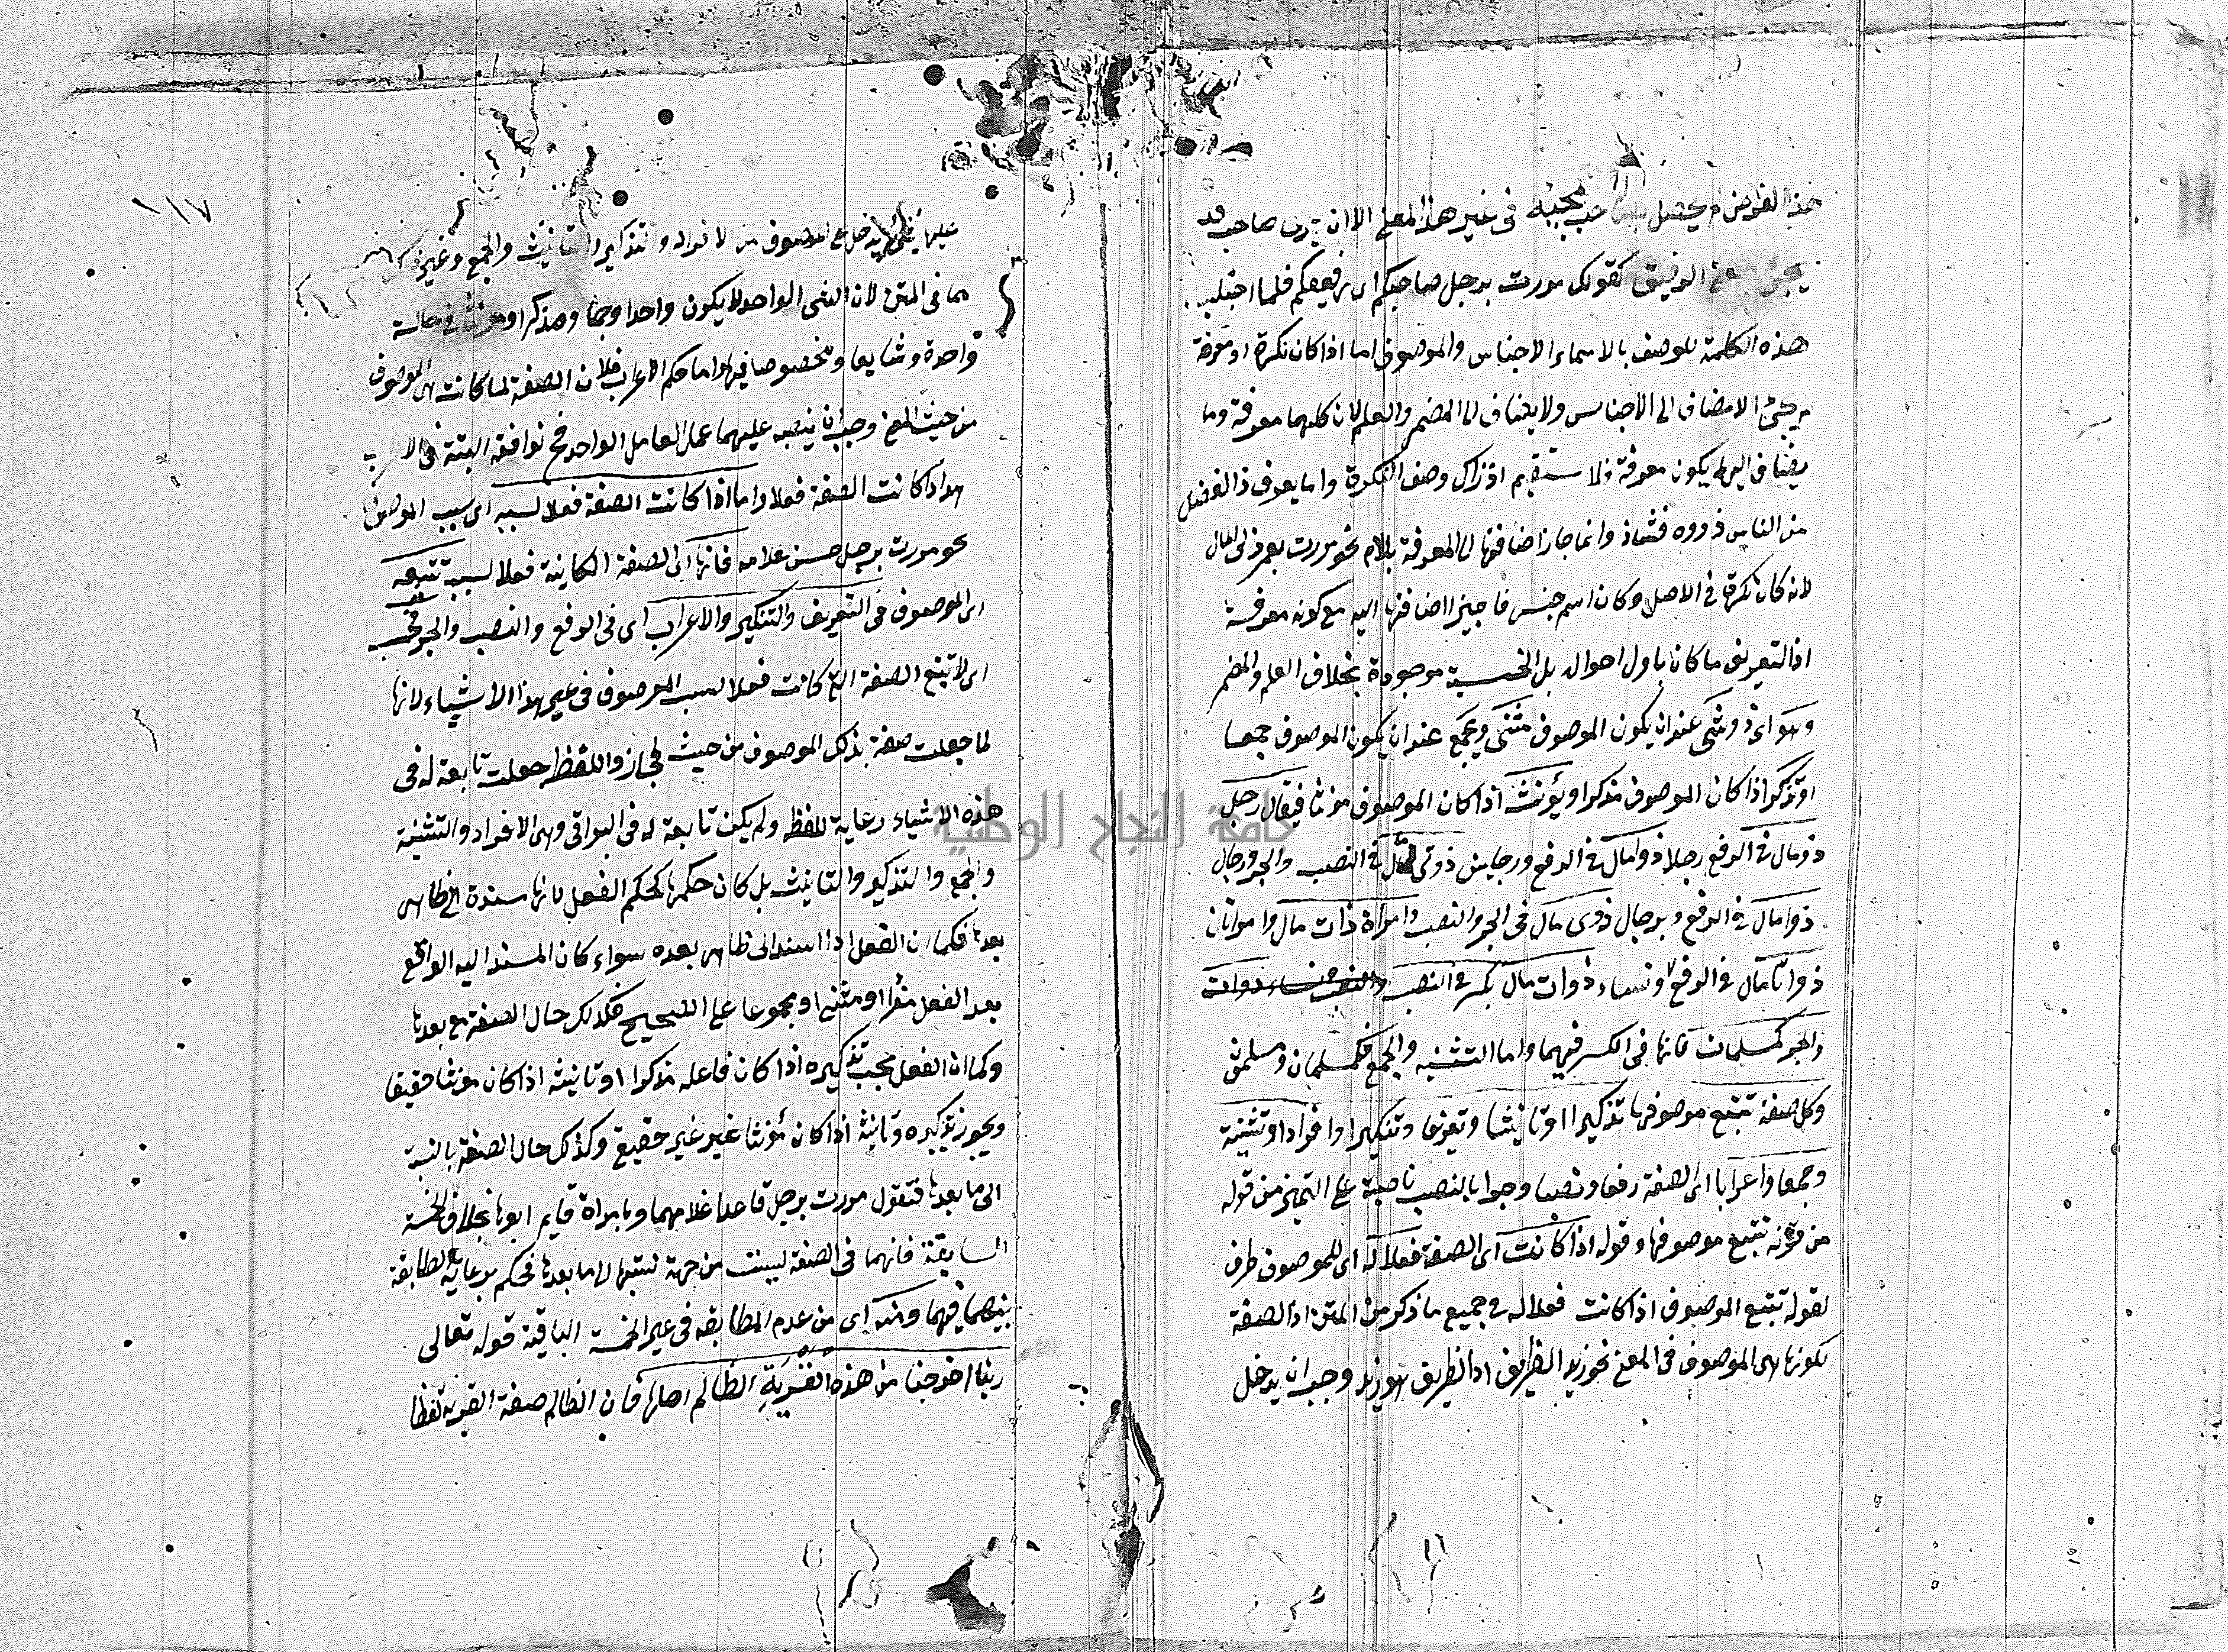 هذا الفرض لم يحصل بصاحب لمجيئه فى غير هذا المعنى الا ان ترى صاحب قد
يجئ بمعنى الرفيق كقولك مررت برجل صاحبكم اى رفيقكم فلما اجتلب
هذه الكلمة للوصف بالاسماء الاجناس والموصوف اما اذا كان نكرة او معرفة
لم يجئ الا مضاف الى الاجناس ولا يضاف الى المضمر والعلم لان كلهما معرفة وما
يضاف اليه يكون معرفة فلا يستقيم اذ ذاك وصف النكرة واما يعرف ذا الفضل
من الناس ذووه فشاذ وانما جاز اضافتها الى المعرفة بلام نحو مررت بعمرو ذى المال
لانه كان نكرة فى الاصل وكان اسم جنس فاجيز اضافتها اليه مع كونه معرفة
اذ التعريف ما كان باول احواله بل الجنسية موجودة بخلاف العلم والمضمر
وهو اى ذو يثنى عند ان يكون الموصوف مثنى ويجمع عند ان يكون الموصوف جمعا
او يذكر اذا كان الموصوف مذكرا ويؤنث اذا كان الموصوف مؤنثا فيقال رجل
ذو مال فى الرفع رجلان ذوا مال فى الرفع ورجلين ذوى مال فى النصب والجر ورجال
ذووا مال فى الرفع وبرجال ذوى مال فى الجر والنصب وامرأة ذات مال وامرأتان
ذواتا مال فى الرفع ونساء ذوات مال بكسر فى النصب
والجر كمسلمات فانها فى الكسر فيهما واما التثنيه والجمع فكمسلمان ومسلمتى
وكل صفة تتبع موصوفها تذكيرا او تانيثا وتعريفا وتنكيرا وافرادا وتثنية
وجمعا واعرابا اى الصفة رفعا ونصبا وجرا بالنصب ناصبة على التميز من قوله
من قوله تتبع موصوفها وقوله اذا كانت اى الصفة فعلا له اى للموصوف ظرف
لقوله تتبع الموصوف اذا كانت فعلا له فى جميع ما ذكر من المتن اذ الصفة
لكونها هى الموصوف فى المعنى نحو زيد الظريف اذ الظريف هو زيد وجب ان يدخل
عليها ما يدخل على الموصوف من الافراد والتذكير والتانيث والجمع وغير ذلك
مما فى المتن لان الشى الواحد لا يكون واحدا وجمعا ومذكرا ومؤنثا فى حالة
واحدة وشايعا ومخصوصا فيها واما حكم الاعراب فلان الصفة لما كانت هى الموصوف
من حيث المعنى وجب ان ينصب عليهما عمل العامل الواحد فح توافقه البتة فى الاعراب
هذا اذا كانت الصفة فعلا له واما اذا كانت الصفة فعلا لسببه اى سبب الموصوف
نحو مررت برجل حسن غلامه فانها اى الصفة الكاينة فعلا لسببه تتبعه
اى الموصوف فى التعريف والتنكير والاعراب اى فى الرفع والنصب والجر فحسب
اى لا تتبع الصفة التى كانت فعلا لسبب الموصوف فى غير هذا الاشياء لانها
لما جعلت صفة بذلك الموصوف من حيث المجاز واللفظ جعلت تابعة له فى
هذه الاشياء رعاية للفظ ولم يكن تابعة له فى البواقى وهى الافراد والتثنية
والجمع والتذكير والتانيث بل كان حكمها كحكم الفعل لانها مسندة الى ظاهر
بعدها فكما ان الفعل اذا اسند الى ظاهر بعده سواء كان المسند اليه الواقع
بعد الفعل مفردا او مثنى او مجموعا على الصحيح فكذلك حال الصفة مع بعدها
وكما ان الفعل يجب تذكيره اذا كان فاعله مذكرا او تانيثه اذا كان مؤنثا حقيقيا
ويجوز تذكيره وتانيثه اذا كان مؤنثا غير غير حقيقى وكذلك حال الصفة بالنسبة
الى ما بعدها فتقول مررت برجل قاعد غلامهما وبامراة قايم ابوها بخلاف الخمسة
السابقة فانهما فى الصفة ليست من جهة نسبتها الى ما بعدها فحكم برعاية المطابقة
بينهما فيهما ومنه اى من عدم المطابقه فى غير الخمسة الباقية قوله تعالى
ربنا اخرجنا من هذه القرية الظالم اهلها فان الظالم صفة القرية لفظا
١١٧
جامعة النجاح الوطنية